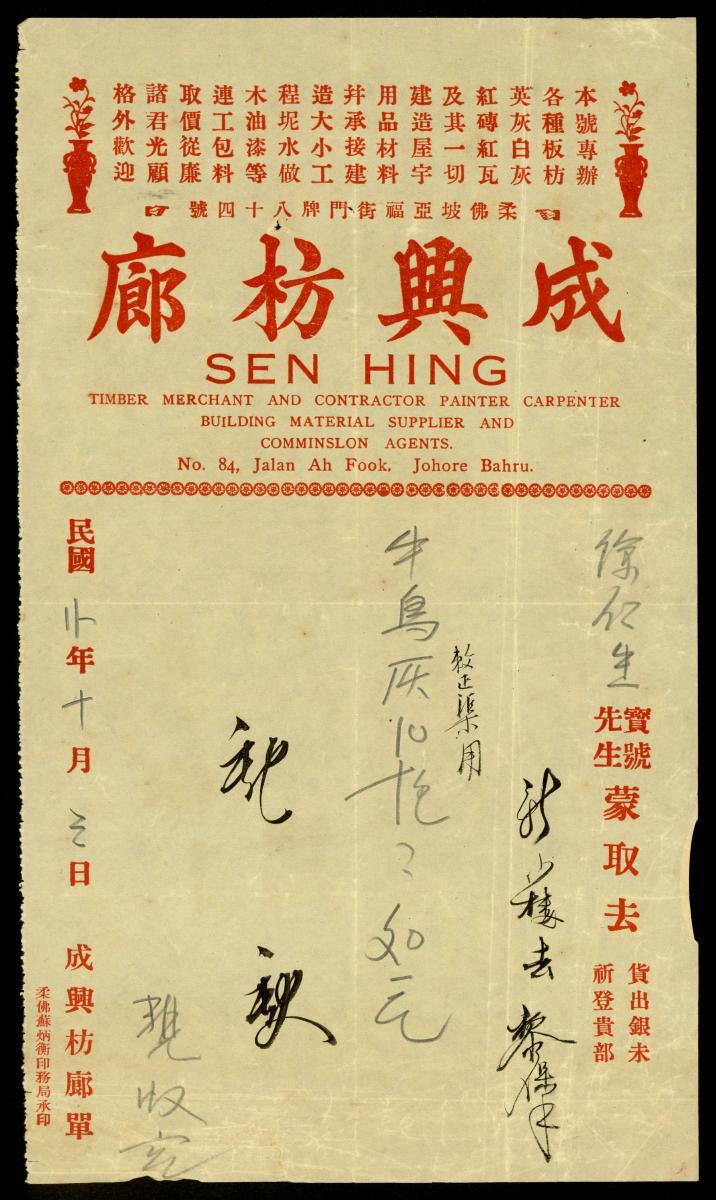 本號專辦
各種板枋
英灰白灰
紅磚紅瓦
及其一切
建造屋宇
用品材料
幷承接建
造大小工
程坭水做
木油漆等
連工包料
取價從廉
諸君光顧
格外歡迎
柔佛坡亞福街門牌八十四號
成興枋廊
SEN HING
TIMBER MERCHANT AND CONTRACTOR PAINTER CARPENTER
BUILDING MATERIAL SUPPLIER AND
COMMINSLON AGENTS.
No. 84, Jalan Ah Fook, Johore Bahru.
徐仁生
寶號
先生
蒙取去
貨出銀未
祈登貴部
去
渠用
牛烏灰10
收
民國卄年十月三日
成興枋廊單
柔佛蘇炳衡印務局承印